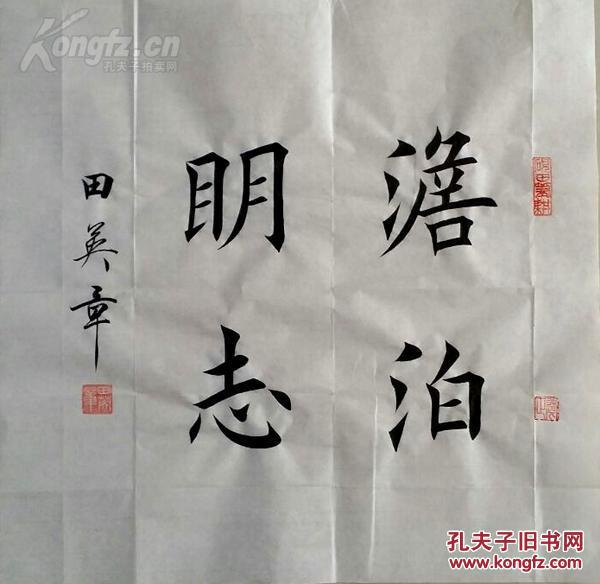 澹泊
眀志
田英章
Kongfz.cn
孔夫子拍卖网
孔夫子旧书网
www.kongfz.com